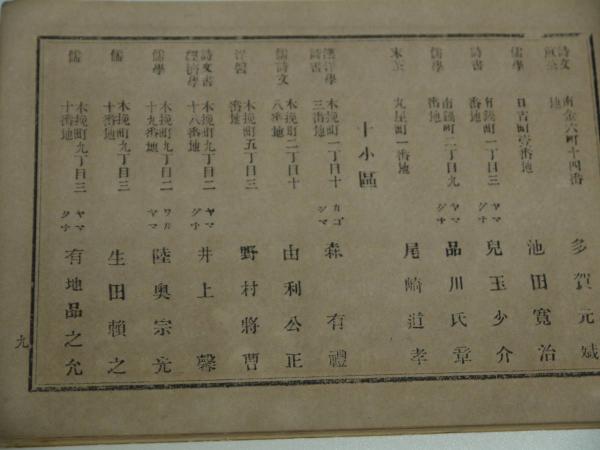 詩文
南金六町十四番地
多賀元斌
儒學
日吉町壹番地
池田寛治
詩書
竹鋪町一丁目三番地
ヤマグチ
兒玉少介
儒學
南鍋町二丁目九番地
ヤマグチ
品川氏章
丸屋町一番地
尾﨑道孝
十小區
漢洋學
詩書
木挽町一丁目十三番地
カゴシマ
森有禮
儒詩文
木挽町二丁目十八番地
由利公正
木挽町五丁目三番地
野村將曹
詩文書
經濟學
木挽町九丁目二十八番地
ヤマグチ
井上馨
儒學
木挽町九丁目二十九番地
ワカヤマ
陸奥宗光
儒
木挽町九丁目三十番地
生田賴之
儒
木挽町九丁目三十番地
ヤマグチ
有地品之允
九